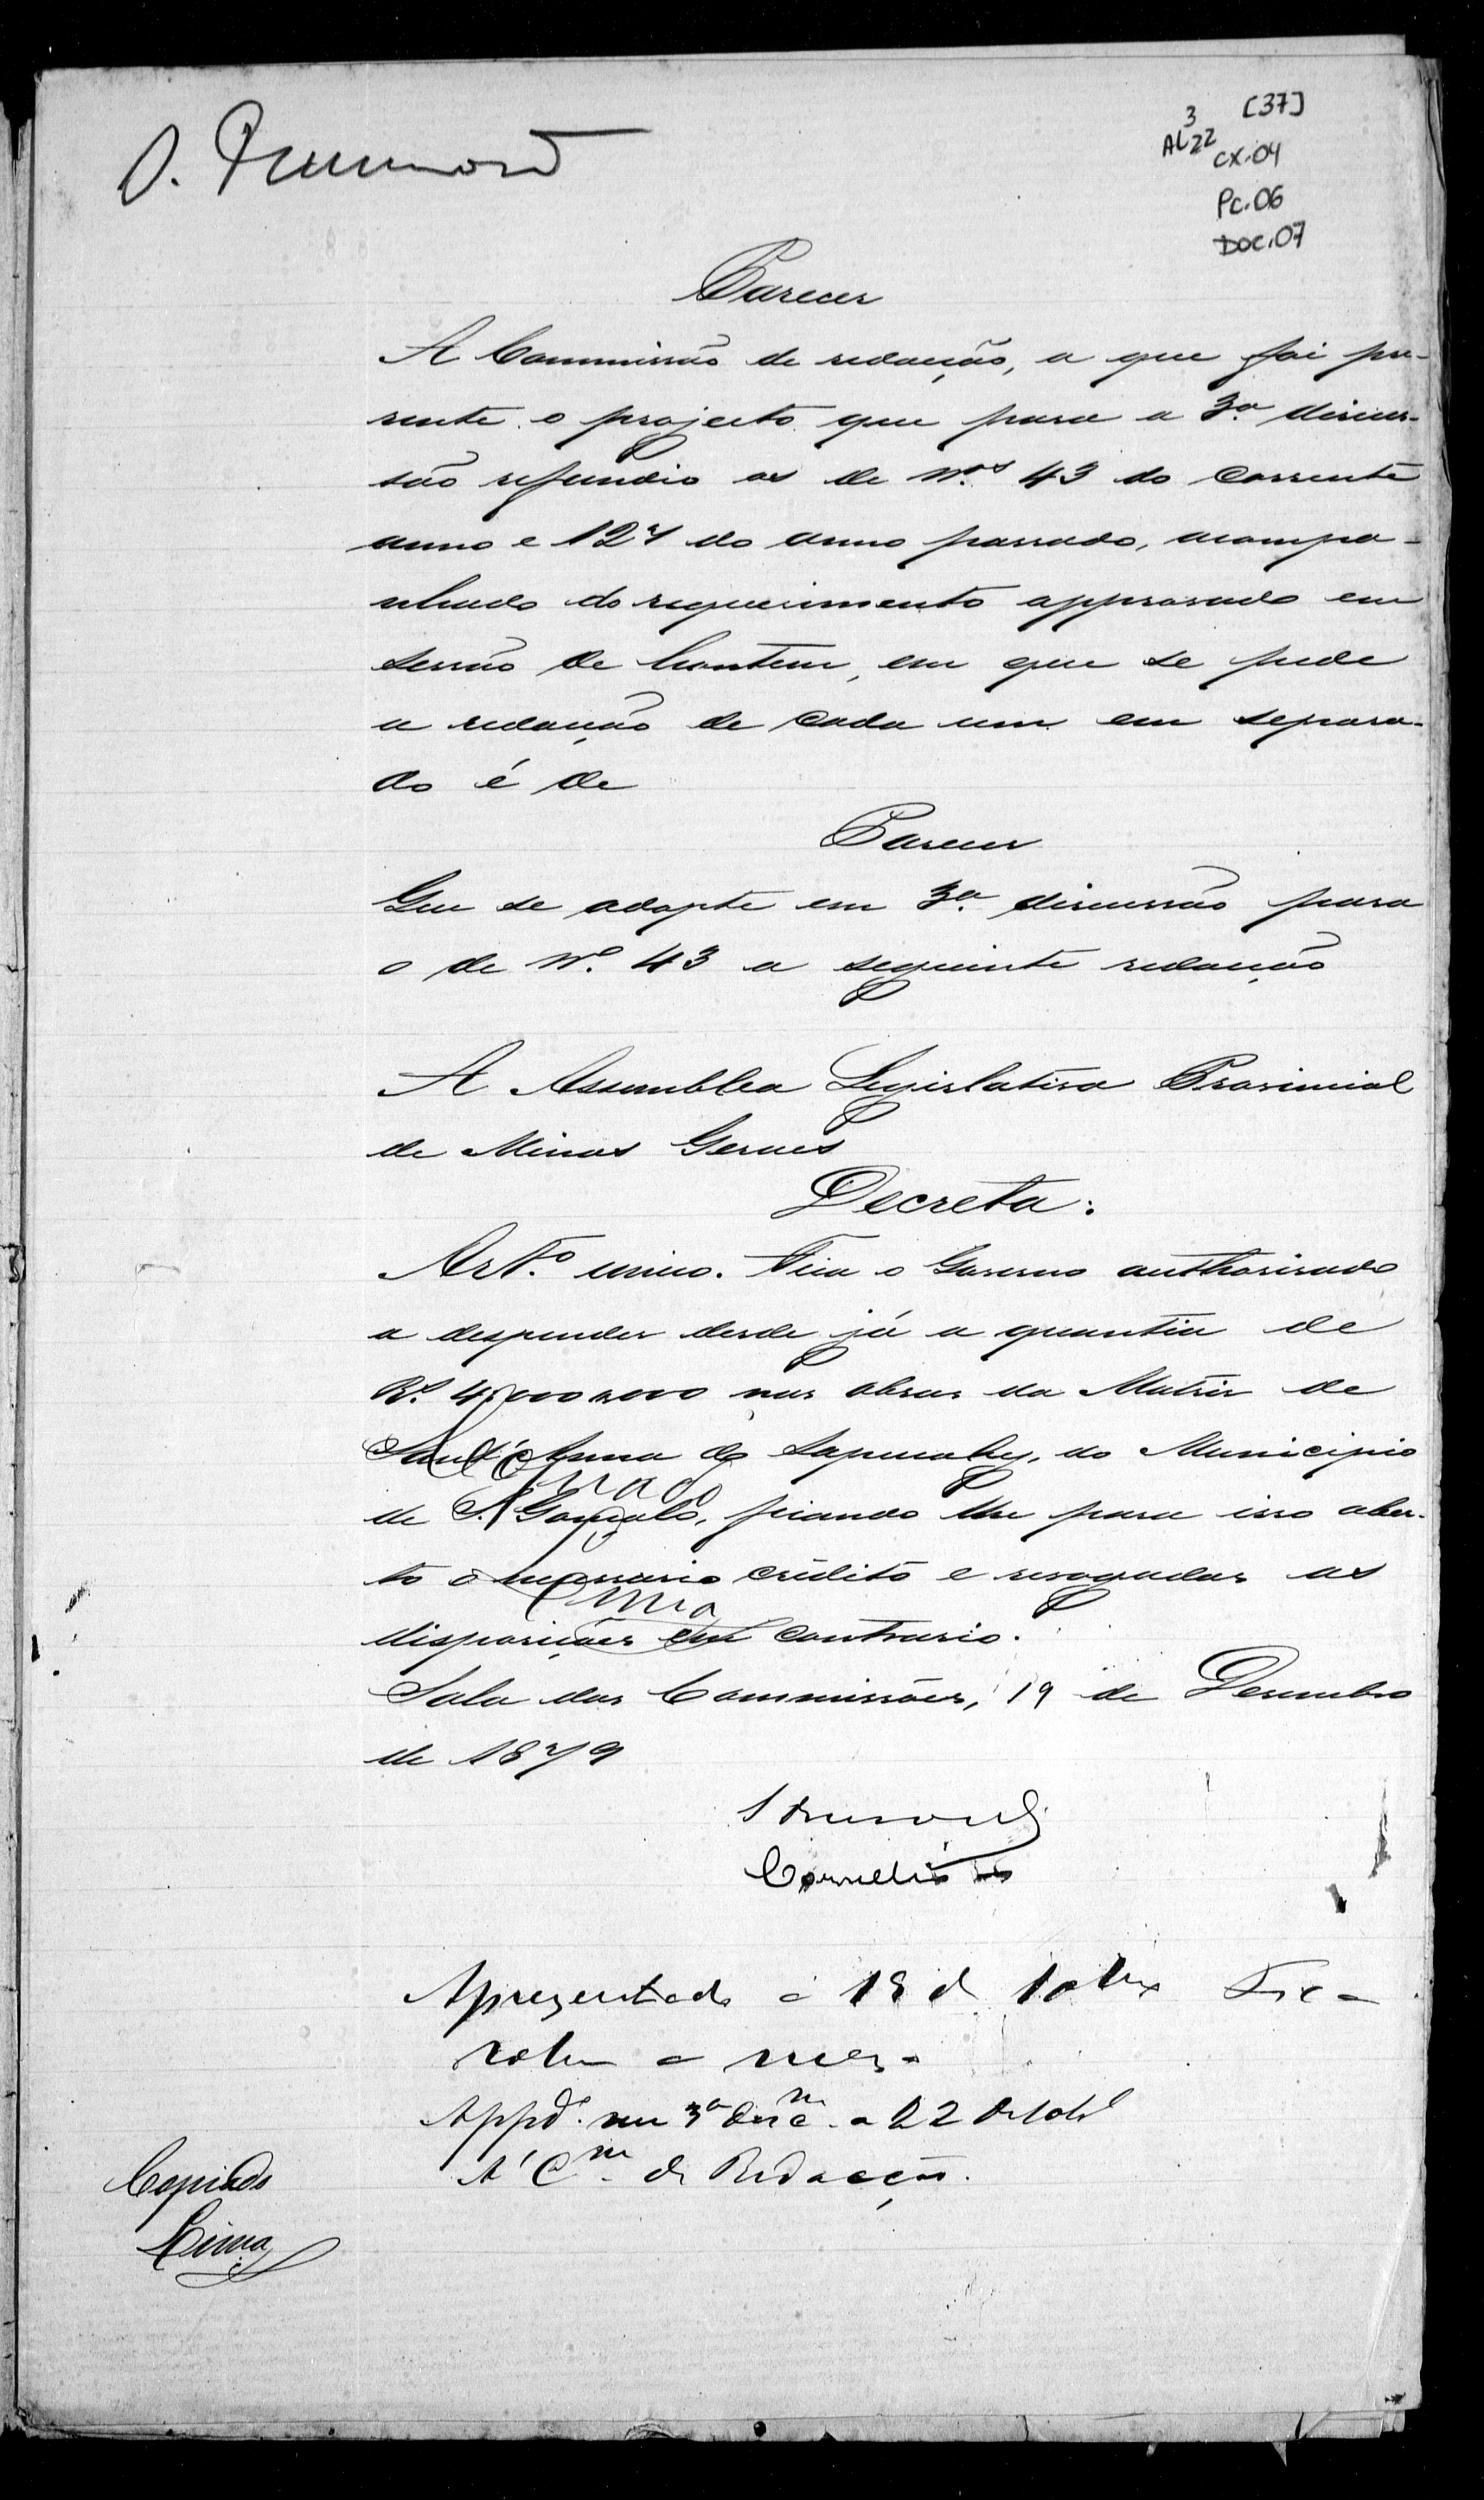 [37]
3
AL22
CX.04
Pc.06
DOC.07
Parecer
A Commissão de redacção, a que foi pre-
sente o projecto que para a 3ª discus-
são refundio os de Nos. 43 do corrente
anno e 127 do anno passado, acompa-
nhado do requerimento approvado em
sessão de hontem, em que se pede
a redacção de cada um em separa-
do é de
Parecer
Que se adopte em 3ª discussão para
o de Nº 43 a seguinte redacção
A Assemblea Legislativa Provincial
de Minas Geraes
Decreta:
Artº unico. Fica o Governo authorisado
a despender desde já a quantia de
Rs. 4,000$000 nas obras da Matriz de
Sant'Anna do Sapucahy, do Municipio
de S. Gonçalo, ficando lhe para isso aber-
to o necessario credito e revogadas as
disposições em contrario.
Sala das Commissões, 19 de Dezembro
de 1879
Drumond
Cornelio
Apresentado a 19 d
Appdº em 3ª a 22
A' Cm de Redacção.
Copiado
Lima